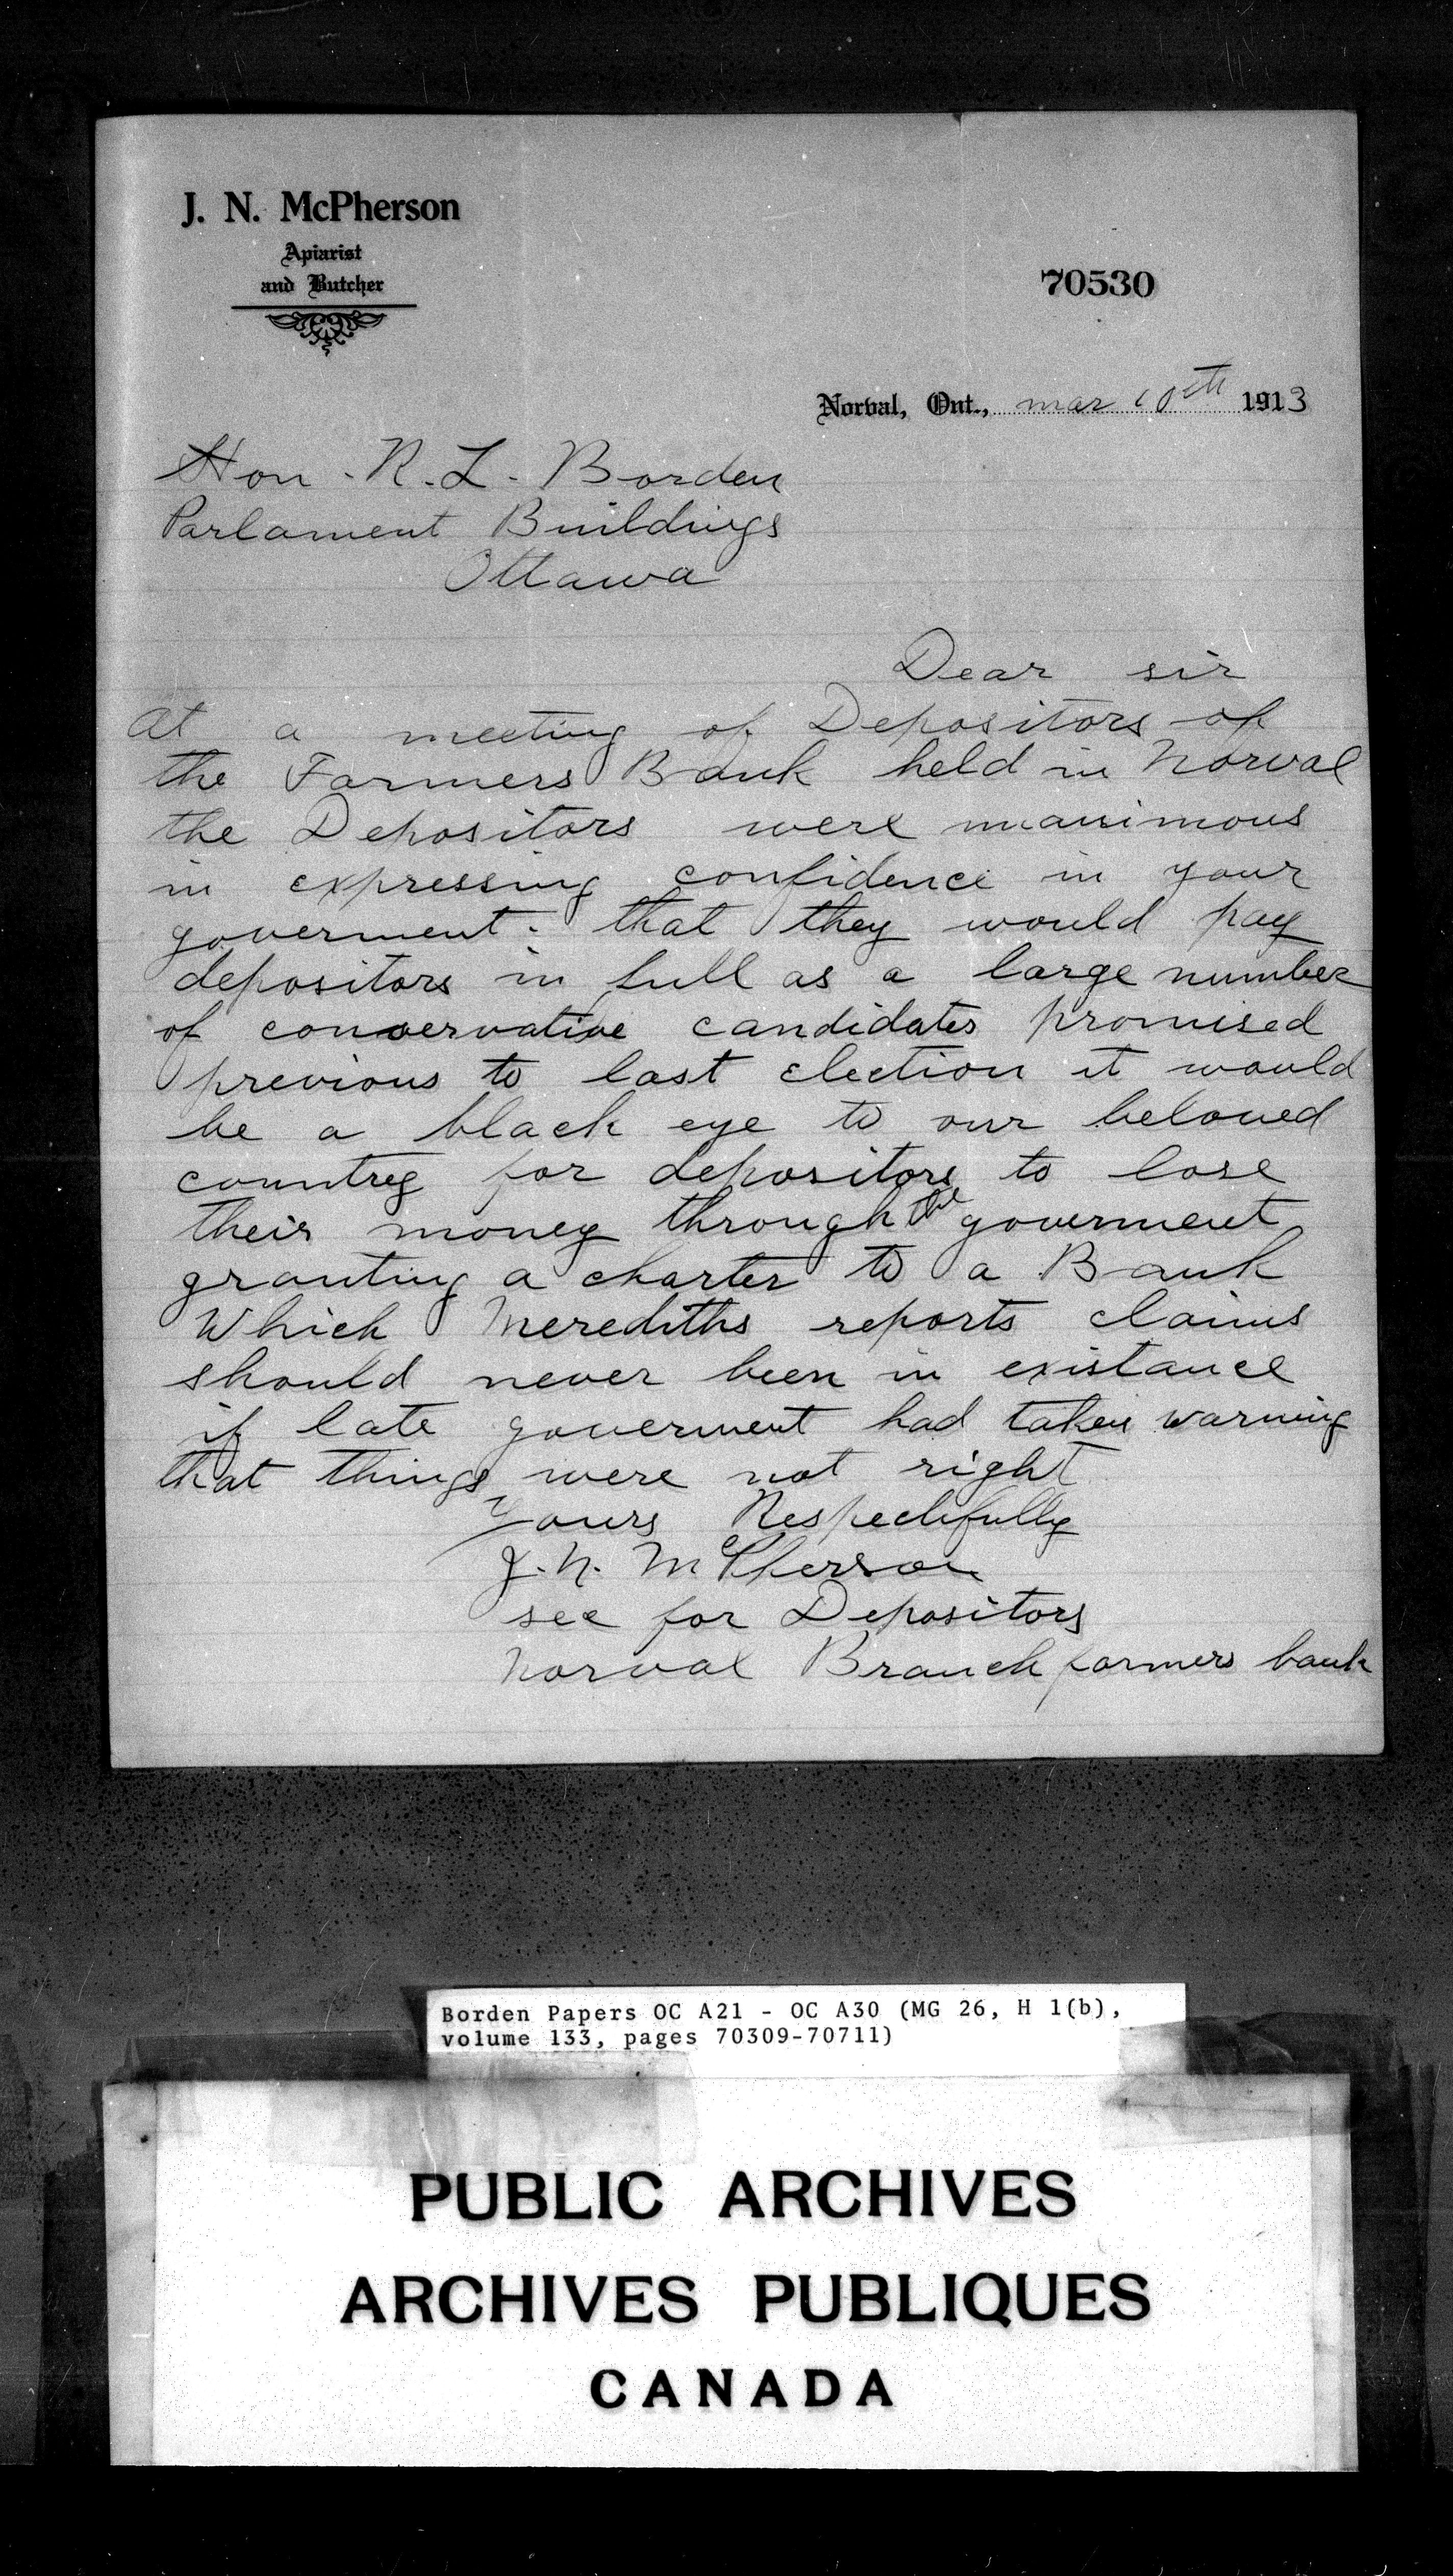 J. N. McPherson
Apiarist
and Butcher
70530
Norval, Ont., mar 10th 1913
Hon. R. L. Borden
Parlament Buildings
Ottawa
Dear sir
At a meeting of Depositors of
the Farmers Bank held in Norval
the Depositors were unanimous
in expressing confidence in your
goverment. that they would pay
depositors in full as a large number
of conservative candidates promised
previous to last election it would
be a black eye to our beloved
country for depositors to lose
their money through the goverment
granting a charter to a Bank
Which Merediths reports claims
should never been in existance
if late goverment had taken warning
that things were not right
Yours Respectifully
J. N. McPherson
sec for Depositors
Norval Branch farmers bank
Borden Papers OC A21 - OC A30 (MG 26, H 1(b),
volume 133, pages 70309-70711)
PUBLIC ARCHIVES
ARCHIVES PUBLIQUES
CANADA